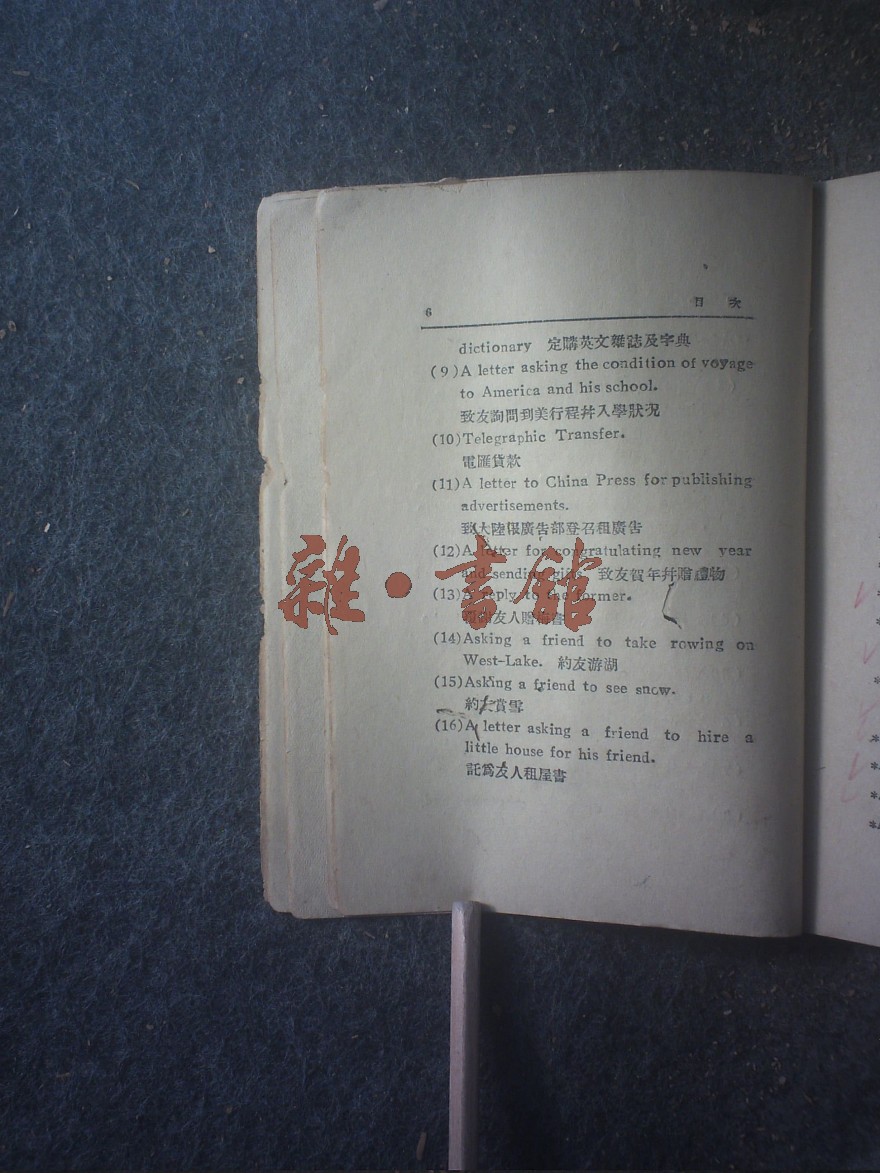 6 目 次
dictionary 定購英文雜誌及字典
(9) A letter asking the condition of voyage
to America and his school.
致友詢問到美行程幷入學狀况
(10) Telegraphic Transfer.
電匯貨款
(11) A letter to China Press for publishing
advertisements.
致大陸報廣告部登召租廣告
(12) A letter for congratulating new year
and sending gifts 致友賀年幷贈禮物
(13) A reply to the former.
友人贈
(14) Asking a friend to take rowing on
West-Lake. 約友游湖
(15) Asking a friend to see snow.
約友賞雪
(16) A letter asking a friend to hire a
little house for his friend.
託爲友人租屋書
雜·書館